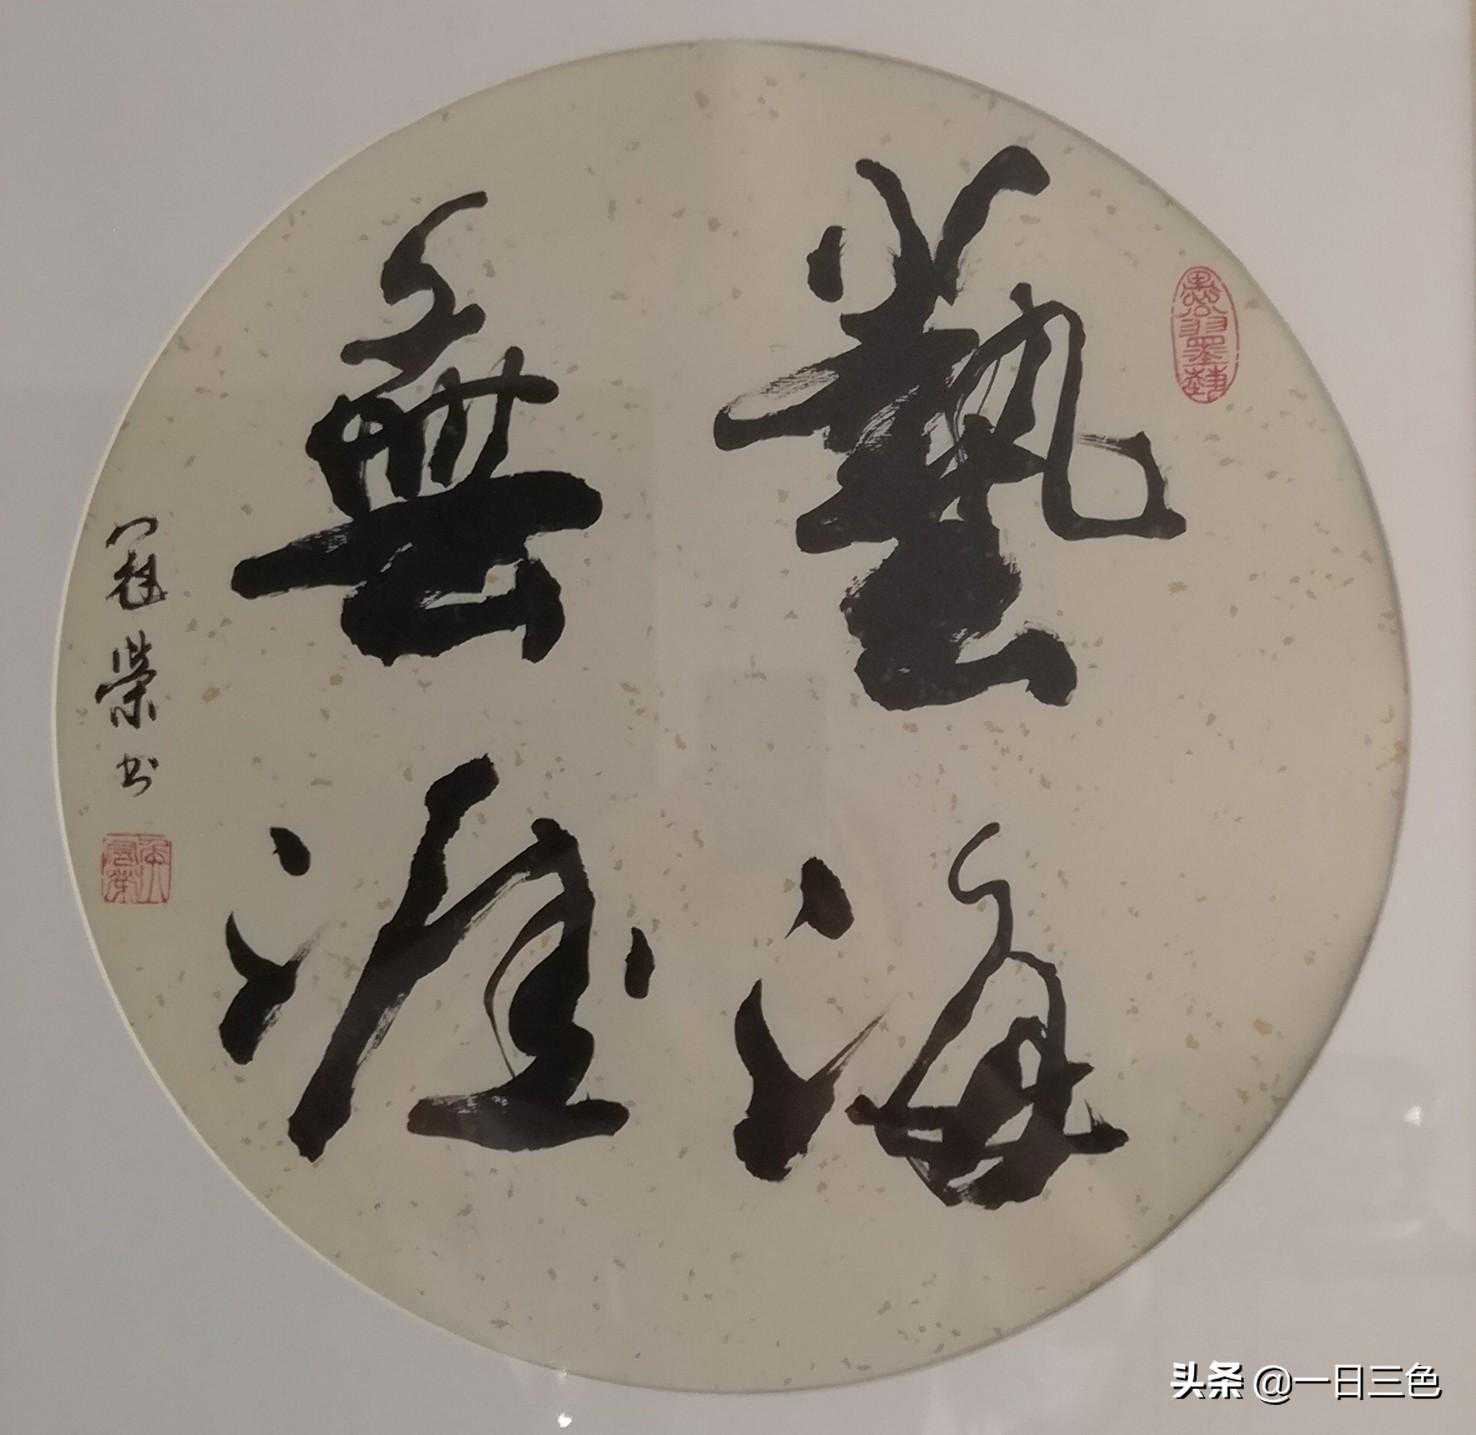 藝海
無涯
冠榮书
头条 @一日三色